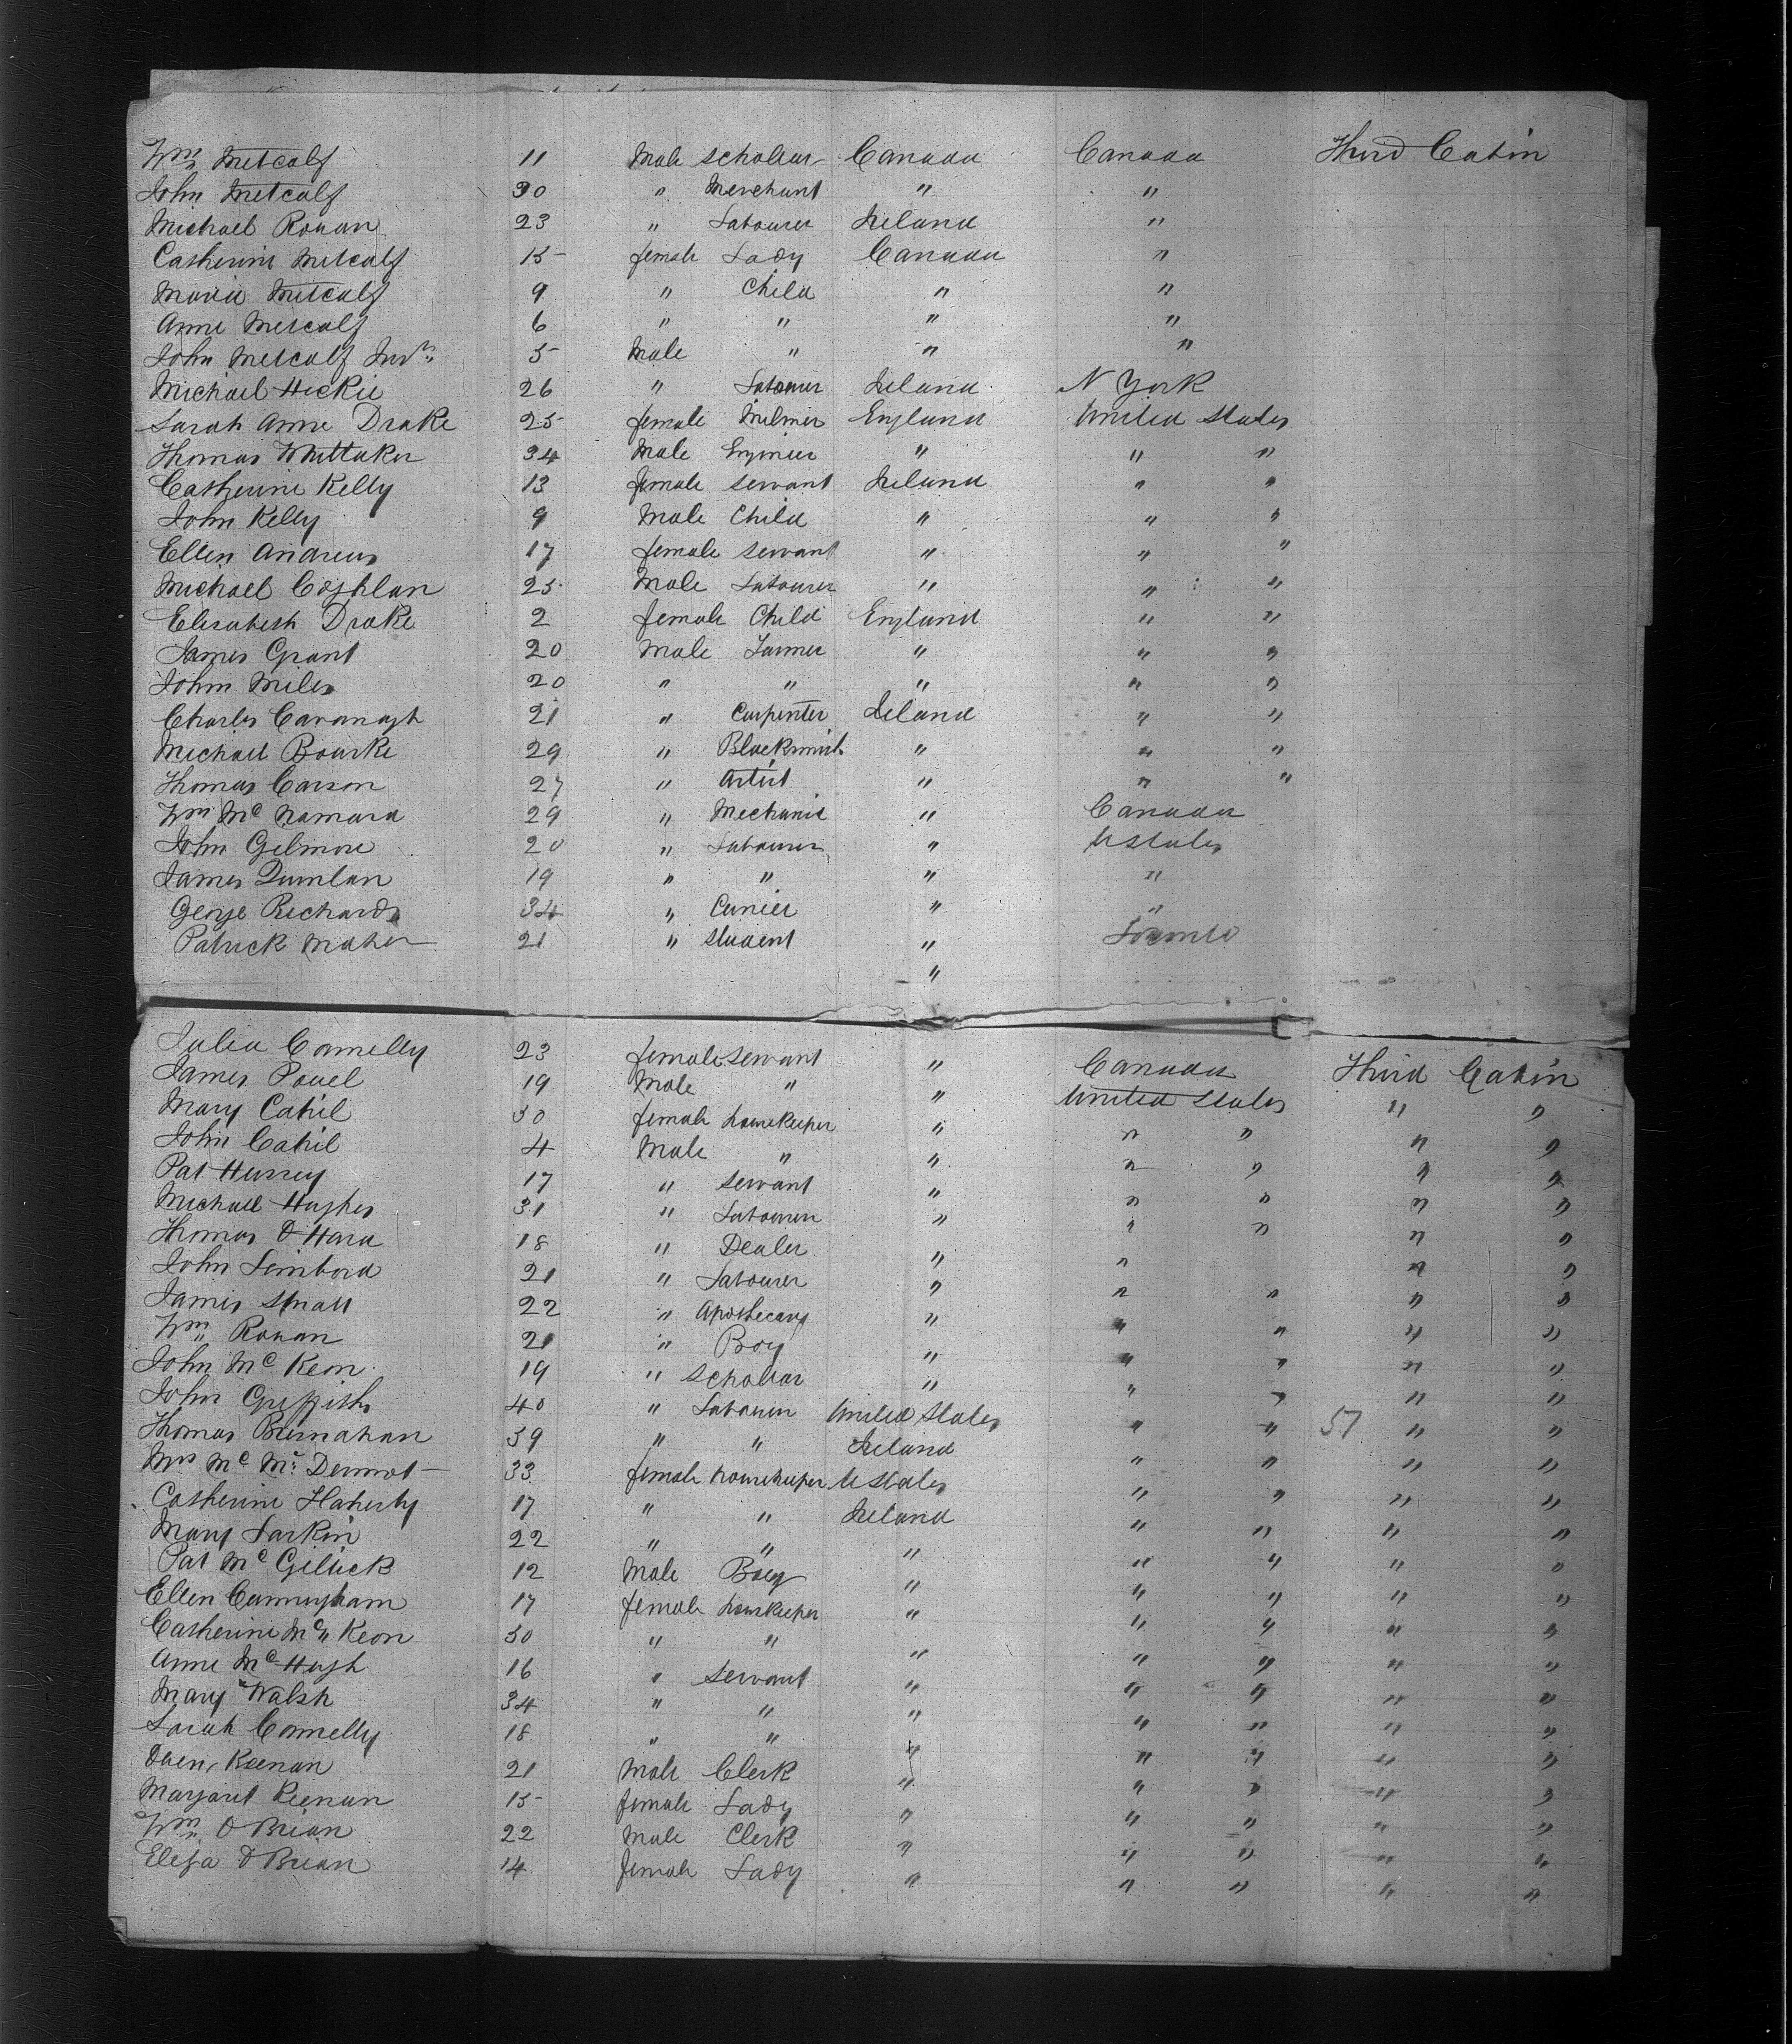 Wm Metcalf 11 Male Scholar Canada Canada Third Cabin
John Metcalf 30 " Merchant " "
Michael Ronan 23 " Labourer Ireland "
Catherine Metcalf 15 female Lady Canada "
Maria Metcalf 9 " Child " "
Anne Metcalf 6 " " " "
John Metcalf Junr 5 Male " " "
Michael Hickie 26 " Labourer Ireland N York
Sarah Anne Drake 25 female Milner England United States
Thomas Whittaker 34 Male Enginier " " "
Catherine Kelly 13 female servant Ireland " "
John Kelly 9 Male Child " " "
Ellen Andrews 17 female servant " " "
Michael Coghlan 25 Male Labourer " " "
Elisabeth Drake 2 female Child England " "
James Grant 20 Male Farmer " " "
John Miles 20 " " " " "
Charles Cavanagh 21 " Carpenter Ireland " "
Michael Bourke 29 " Blacksmith " " "
Thomas Carson 27 " Artist " " "
Wm Mc Namara 29 " Mechanic " Canada
John Gilmore 20 " Labourer " U States
James Quinlan 19 " " " "
George Richards 34 " " "
Patrick Maher 21 " Student " Toronto
"
Julia Connelly 23 female servant " Canada Third Cabin
James Powel 19 Male " " United States " "
Mary Cahil 30 female housekeeper " " " " "
John Cahil 4 Male " " " " " "
Pat Hurrey 17 " servant " " " " "
Michael Hughes 31 " Labourer " " " " "
Thomas O Hara 18 " Dealer " " " "
John 21 " Labourer " " " " "
James Small 22 " Apothecary " " " " "
Wm Ronan 21 " Boy " " " " "
John Mc Keon 19 " Scholar " " " " "
John Griffiths 40 " Labourer United States " " 57 " "
Thomas 39 " " Ireland " " " "
Mrs Mc Dermot 33 female housekeeper U States " " " "
Catherine Flaherty 17 " " Ireland " " " "
Mary Larkin 22 " " " " " " "
Pat Mc 12 Male Boy " " " " "
Ellen Cunningham 17 female housekeeper " " " " "
Catherine Mc Keon 30 " " " " " " "
Anne Mc Hugh 16 " servant " " " " "
Mary Walsh 34 " " " " " " "
Sarah Connelly 18 " " " " " " "
Owen Keenan 21 Male Clerk " " " " "
Margaret Keenan 15 female Lady " " " " "
Wm O Brian 22 Male Clerk " " " " "
Eliza O Brian 14 female Lady " " " " "